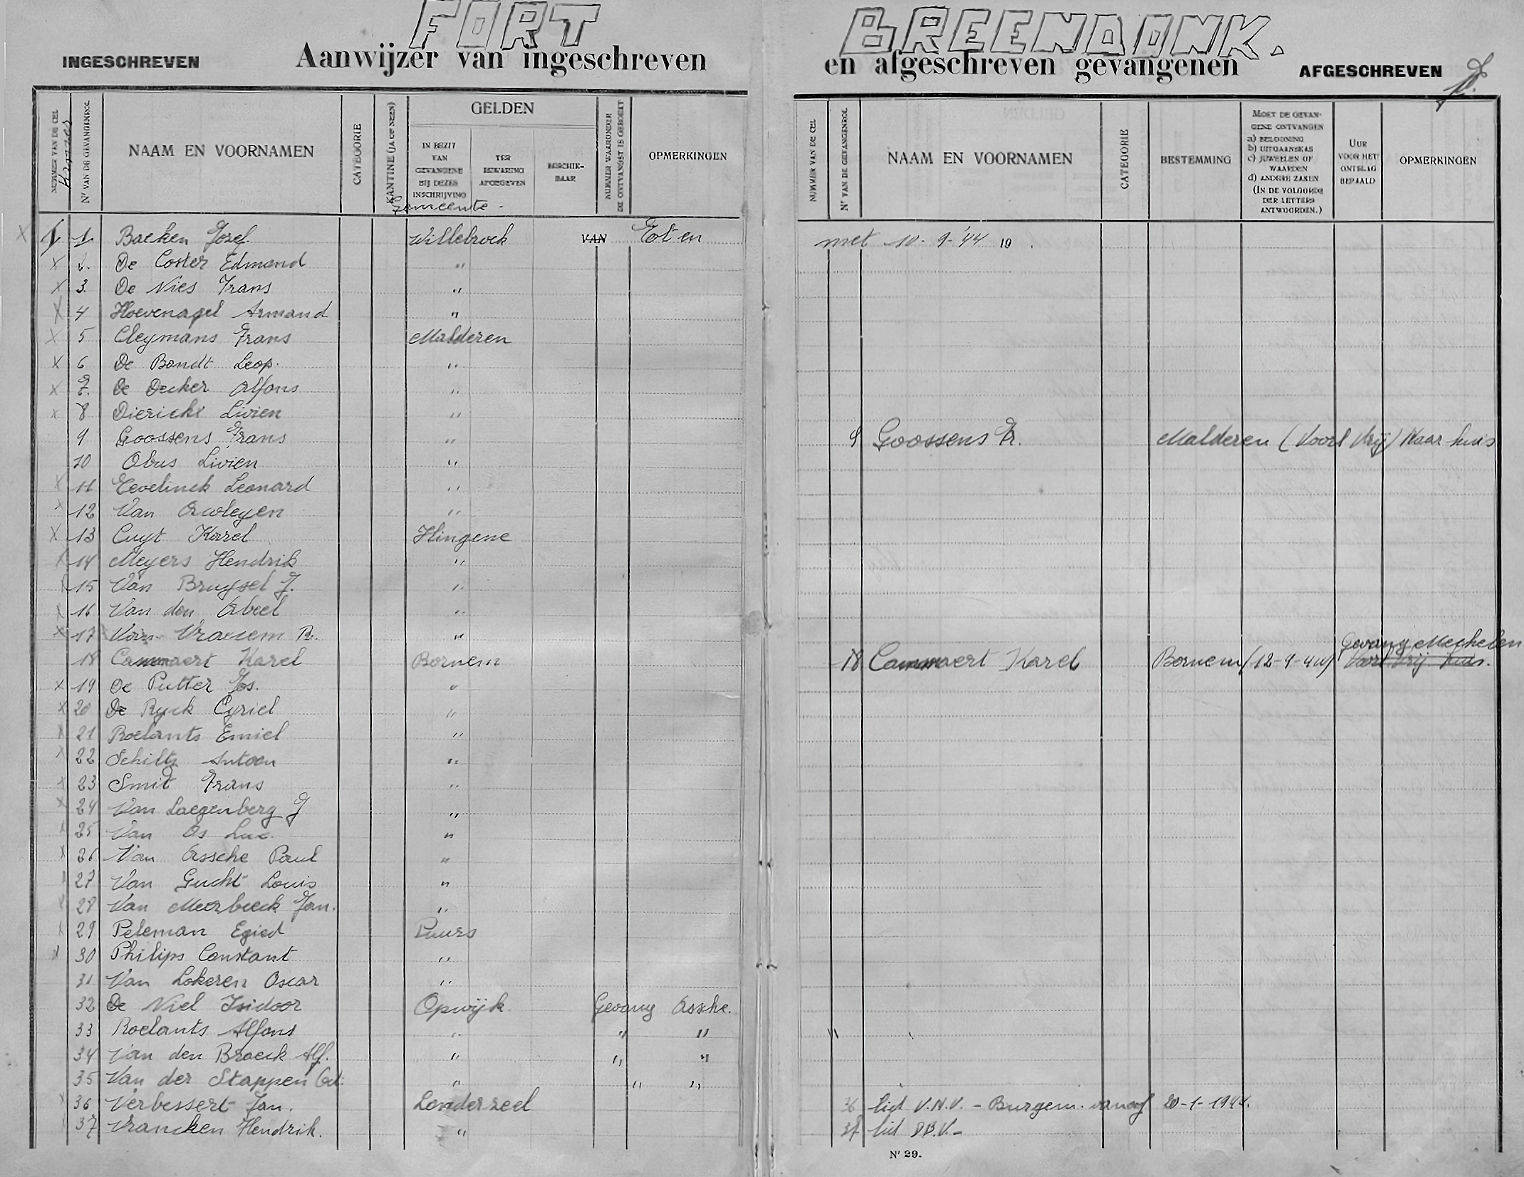 FORT BREENDONK.
INGESCHREVEN Aanwijzer van ingeschreven en afgeschreven gevangenen AFGESCHREVEN
NUMMER VAN DE CEL
Nr VAN DE GEVANGENROL
NAAM EN VOORNAMEN
CATEGORIE
KANTINE (JA OF NEEN)
GELDEN
IN BEZIT VAN GEVANGENE BIJ DEZES INSCHRIJVING
TER BEWARING AFGEGEVEN
BESCHIK-BAAR
NUMMER WAARONDER DE ONTVANGST IS GEBOEKT
OPMERKINGEN
Gemeente.
NUMMER VAN DE CEL
Nr VAN DE GEVANGENROL
NAAM EN VOORNAMEN
CATEGORIE
BESTEMMING
MOET DE GEVAN-
GENE ONTVANGEN
a) BELOONING
b) UITGAANSKAS
c) JUWEELEN OF WAARDEN
d) ANDERE ZAKEN
(IN DE VOLGORDE DER LETTERS ANTWOORDEN.)
UUR VOOR HET ONTSLAG BEPAALD
OPMERKINGEN
1 1. Baeken Jozef Willebroek VAN Tot en met 10-9-'44 19 .
x 2. De Coster Edmond "
x 3 De Nies Frans "
x 4 Hoevenagel Armand "
x 5 Cleymans Frans Malderen
x 6 De Bondt Leop. "
x 7. De Decker Alfons "
x 8 Dierickx Livien "
9 Goossens Frans " 9 Goossens Fr. Malderen (Voorl Vrij) Naar huis
10 Obus Livien "
x 11 Eevelinck Leonard "
x 12 Van "
x 13 Cuyt Karel Hingene
x 14 Meyers Hendrik "
x 15 Van Bruysel J. "
x 16 Van den Abeel "
x 17 Van Vracem "
Gevang Mechelen
18 Cammaert Karel Bornem 18 Cammaert Karel Bornem (12-9-44) Voorl Vrij huis.
x 19 De Putter Jos. "
x 20 De Ryck Cyriel "
x 21 Roelants Emiel "
x 22 Schiltz Antoon "
x 23 Smit Frans "
x 24 Van Laegenberg J "
x 25 Van Os Luc. "
x 26 Van Assche Paul "
27 Van Gucht Louis "
28 Van Meerbeeck Jan. "
x 29 Peleman Egied Puurs
x 30 Philips Constant "
31 Van Lokeren Oscar "
32 De Niel Isidoor Opwijk Gevang Assche.
33 Roelants Alfons " " "
34 Van den Broeck Alf. " " "
35 Van der Stappen Oct. " " "
36 Verbessert Jan. Londerzeel 36 lid V.N.V. - Burgem. vanaf 20-1-1944.
37 Vrancken Hendrik. " 37 lid
Nr 29.